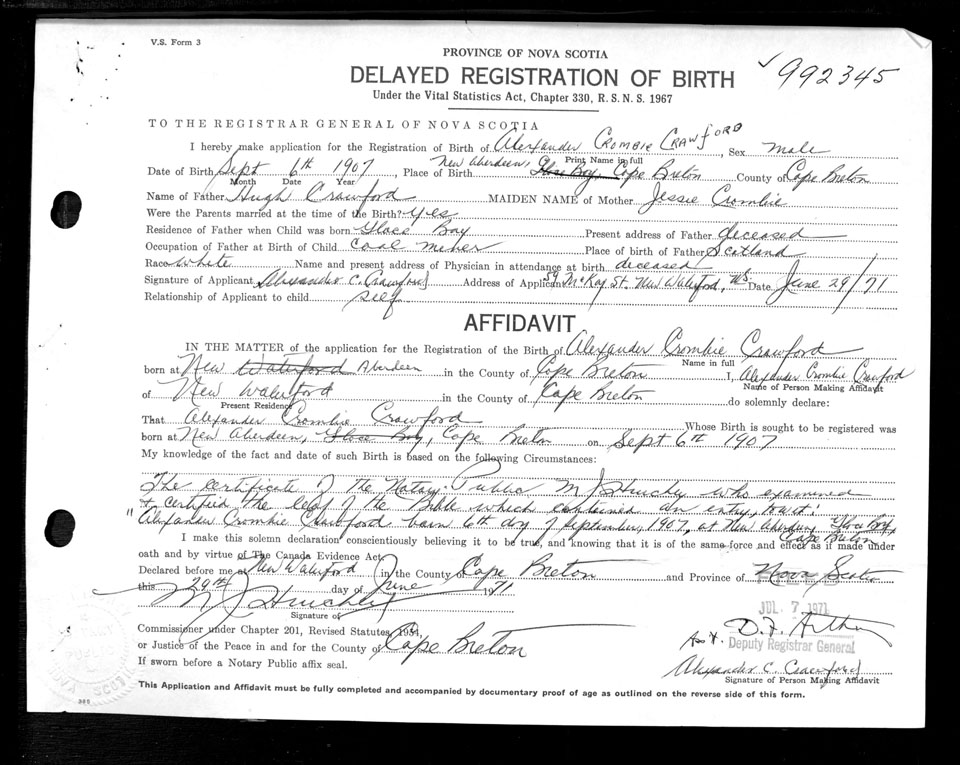 V.S. Form 3
PROVINCE OF NOVA SCOTIA
DELAYED REGISTRATION OF BIRTH
✓992345
Under the Vital Statistics Act, Chapter 330, R.S.N.S. 1967
TO THE REGISTRAR GENERAL OF NOVA SCOTIA
I hereby make application for the Registration of Birth of Alexander Crombie Crawford, Sex male
Print Name in full
Date of Birth Sept 6th 1907, Place of Birth New Aberdeen, Glace Bay, Cape Breton County of Cape Breton
Month Date Year
Name of Father Hugh Crawford MAIDEN NAME of Mother Jessie Crombie
Were the Parents married at the time of the Birth? yes
Residence of Father when Child was born Glace Bay Present address of Father deceased
Occupation of Father at Birth of Child coal miner Place of birth of Father Scotland
Race White Name and present address of Physician in attendance at birth deceased
Signature of Applicant Alexander C. Crawford Address of Applicant 59 McKay St. New Waterford, N.S. Date June 29/71
Relationship of Applicant to child self
AFFIDAVIT
IN THE MATTER of the application for the Registration of the Birth of Alexander Crombie Crawford
Name in full
born at New Waterford Aberdeen in the County of Cape Breton I, Alexander Crombie Crawford
Name of Person Making Affidavit
of New Waterford in the County of Cape Breton do solemnly declare:
Present Residence
That Alexander Crombie Crawford Whose Birth is sought to be registered was
born at New Aberdeen, Glace Bay, Cape Breton on Sept 6th 1907
My knowledge of the fact and date of such Birth is based on the following Circumstances:
The certificate of the Notary Public M J Hinchey who examined
+ certified the leaf of the Bible which contained an entry, to wit:
"Alexander Crombie Crawford born 6th day of September, 1907, at New Aberdeen, Glace Bay,
Cape Breton
I make this solemn declaration conscientiously believing it to be true, and knowing that it is of the same force and effect as if made under
oath and by virtue of The Canada Evidence Act.
Declared before me at New Waterford in the County of Cape Breton and Province of Nova Scotia
this 29th day of June 1971
M J Hinchey
Signature of
JUL 7 1971
Commissioner under Chapter 201, Revised Statutes, 1954,
or Justice of the Peace in and for the County of Cape Breton
If sworn before a Notary Public affix seal.
Deputy Registrar General
Alexander C. Crawford
Signature of Person Making Affidavit
This Application and Affidavit must be fully completed and accompanied by documentary proof of age as outlined on the reverse side of this form.